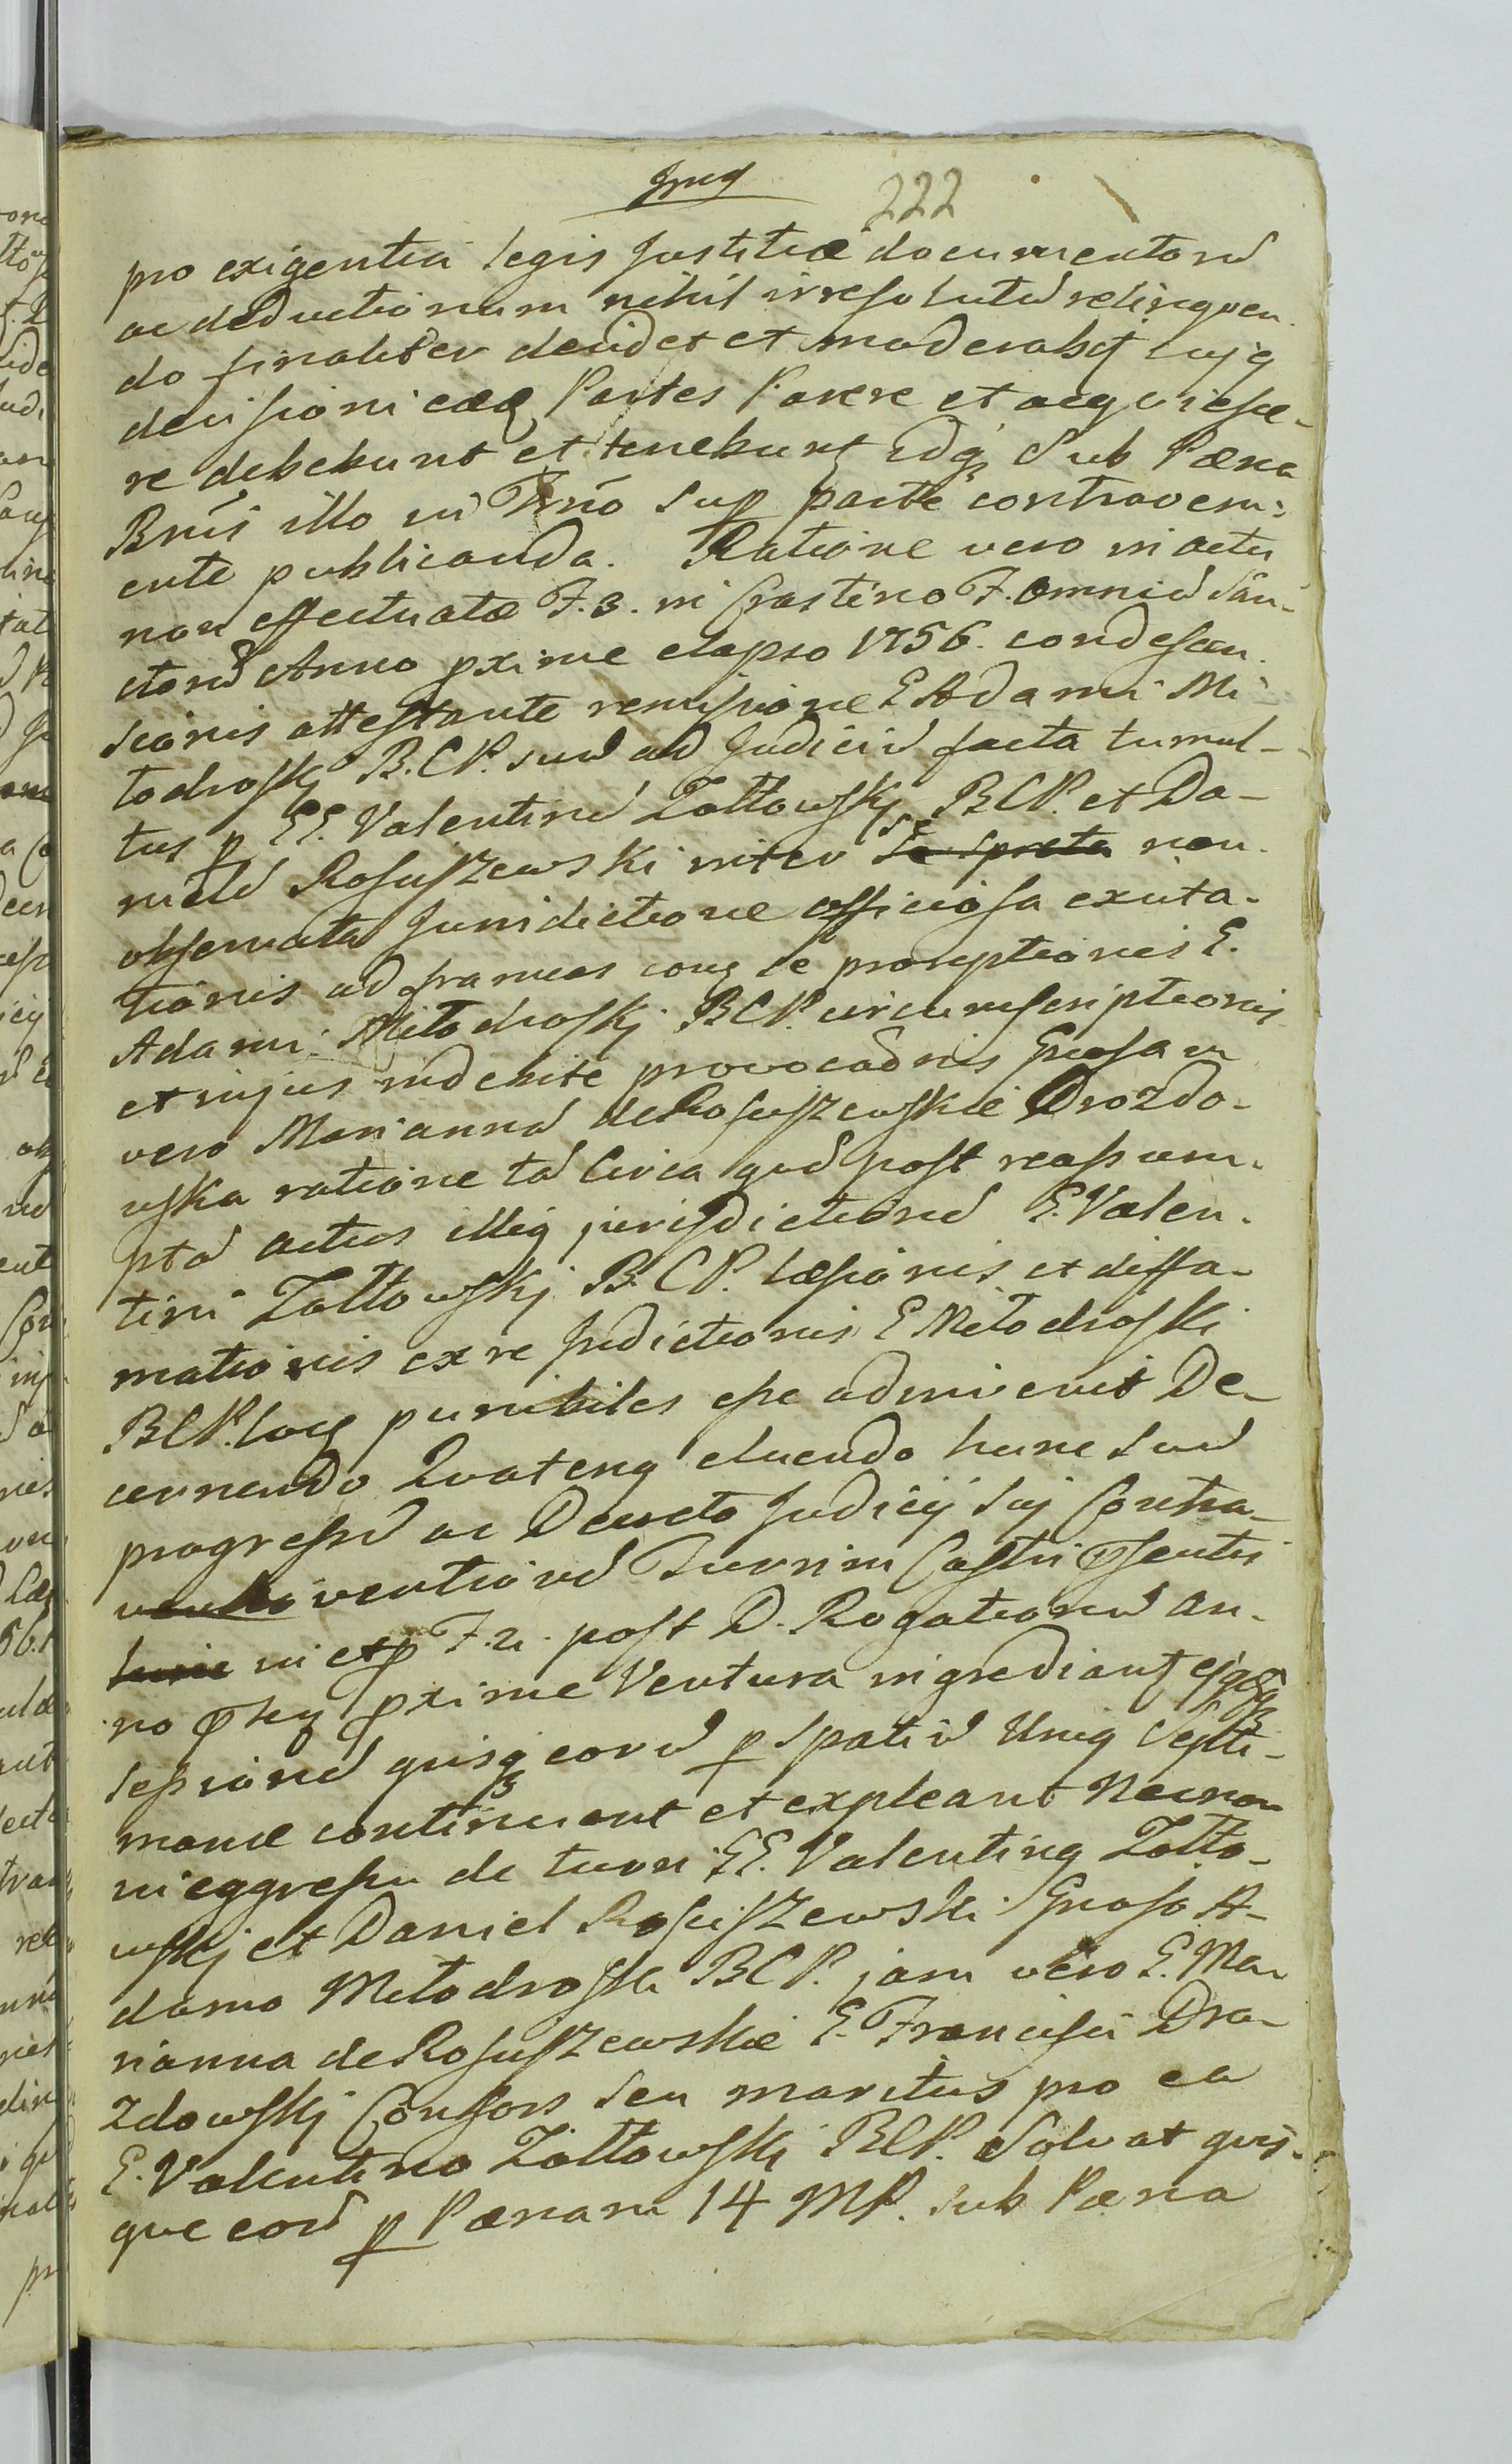 222
pro exigentia legis Justitiæ documentorū
ac deductionum nihil irresolutū relinquen-
do finaliter decidet et moderabit cujq
decisioni eædē Partes Parere et acquiesce-
re debebunt et tenebunt idq Sub Pæna
Bnis illo in Trno sup parte contraveni-
ente publicanda. Ratione vero in actu
non effectuatæ F. 3. in Crastino F. Omniū San-
ctorū Anno pxime elapso 1756. condescen-
sionis attestante remissione E Adami Mi-
todroski B.C.P. suū ad Judiciū facta tumul-
tus p EE. Valentinū Zołtowskj BCP. et Da-
nielē Rosciszewski inter se spreta non
observata Jurisdictione officiosa excita-
tionis ad frameas conq se promptionis E.
Adami Mitodroskj BCP. circumscriptionis
et injus indebite provocaōnis Grosam
vero Mariannā de Rosciszewskie Drozdo-
wska ratione tā circa quā post reassum-
ptā actus illiq jurisdictionē E. Valen-
tini Zołtowskj B.CP. læsionis et diffa-
mationis ex re Jndictionis E Mitodroski
BCP. punibiles esse adinvenit De-
cernendo Quatenq eluendo hunc suū
progressū ac Decreto Judicij sui Contra-
ventionē Turrim Castri psentis
F. 2. post D. Rogationū an-
no pxime Ventura ingrediant
sessionē quisq eorū p spatiū Uniq Septi-
manæ continuent et expleant Necnon
in eggressu de turri EE. Valentinq Zołto-
wskj et Daniel Rosciszewski Groso A-
damo Mitodroski BCP. jam vero E. Ma-
rianna de Rosciszewskie E. Francisci Dro-
zdowskj Consors seu maritus pro ea
E. Valentino Zołtowski BCP. Solvat quis-
que eorū p Pænam 14 MP. sub Pæna